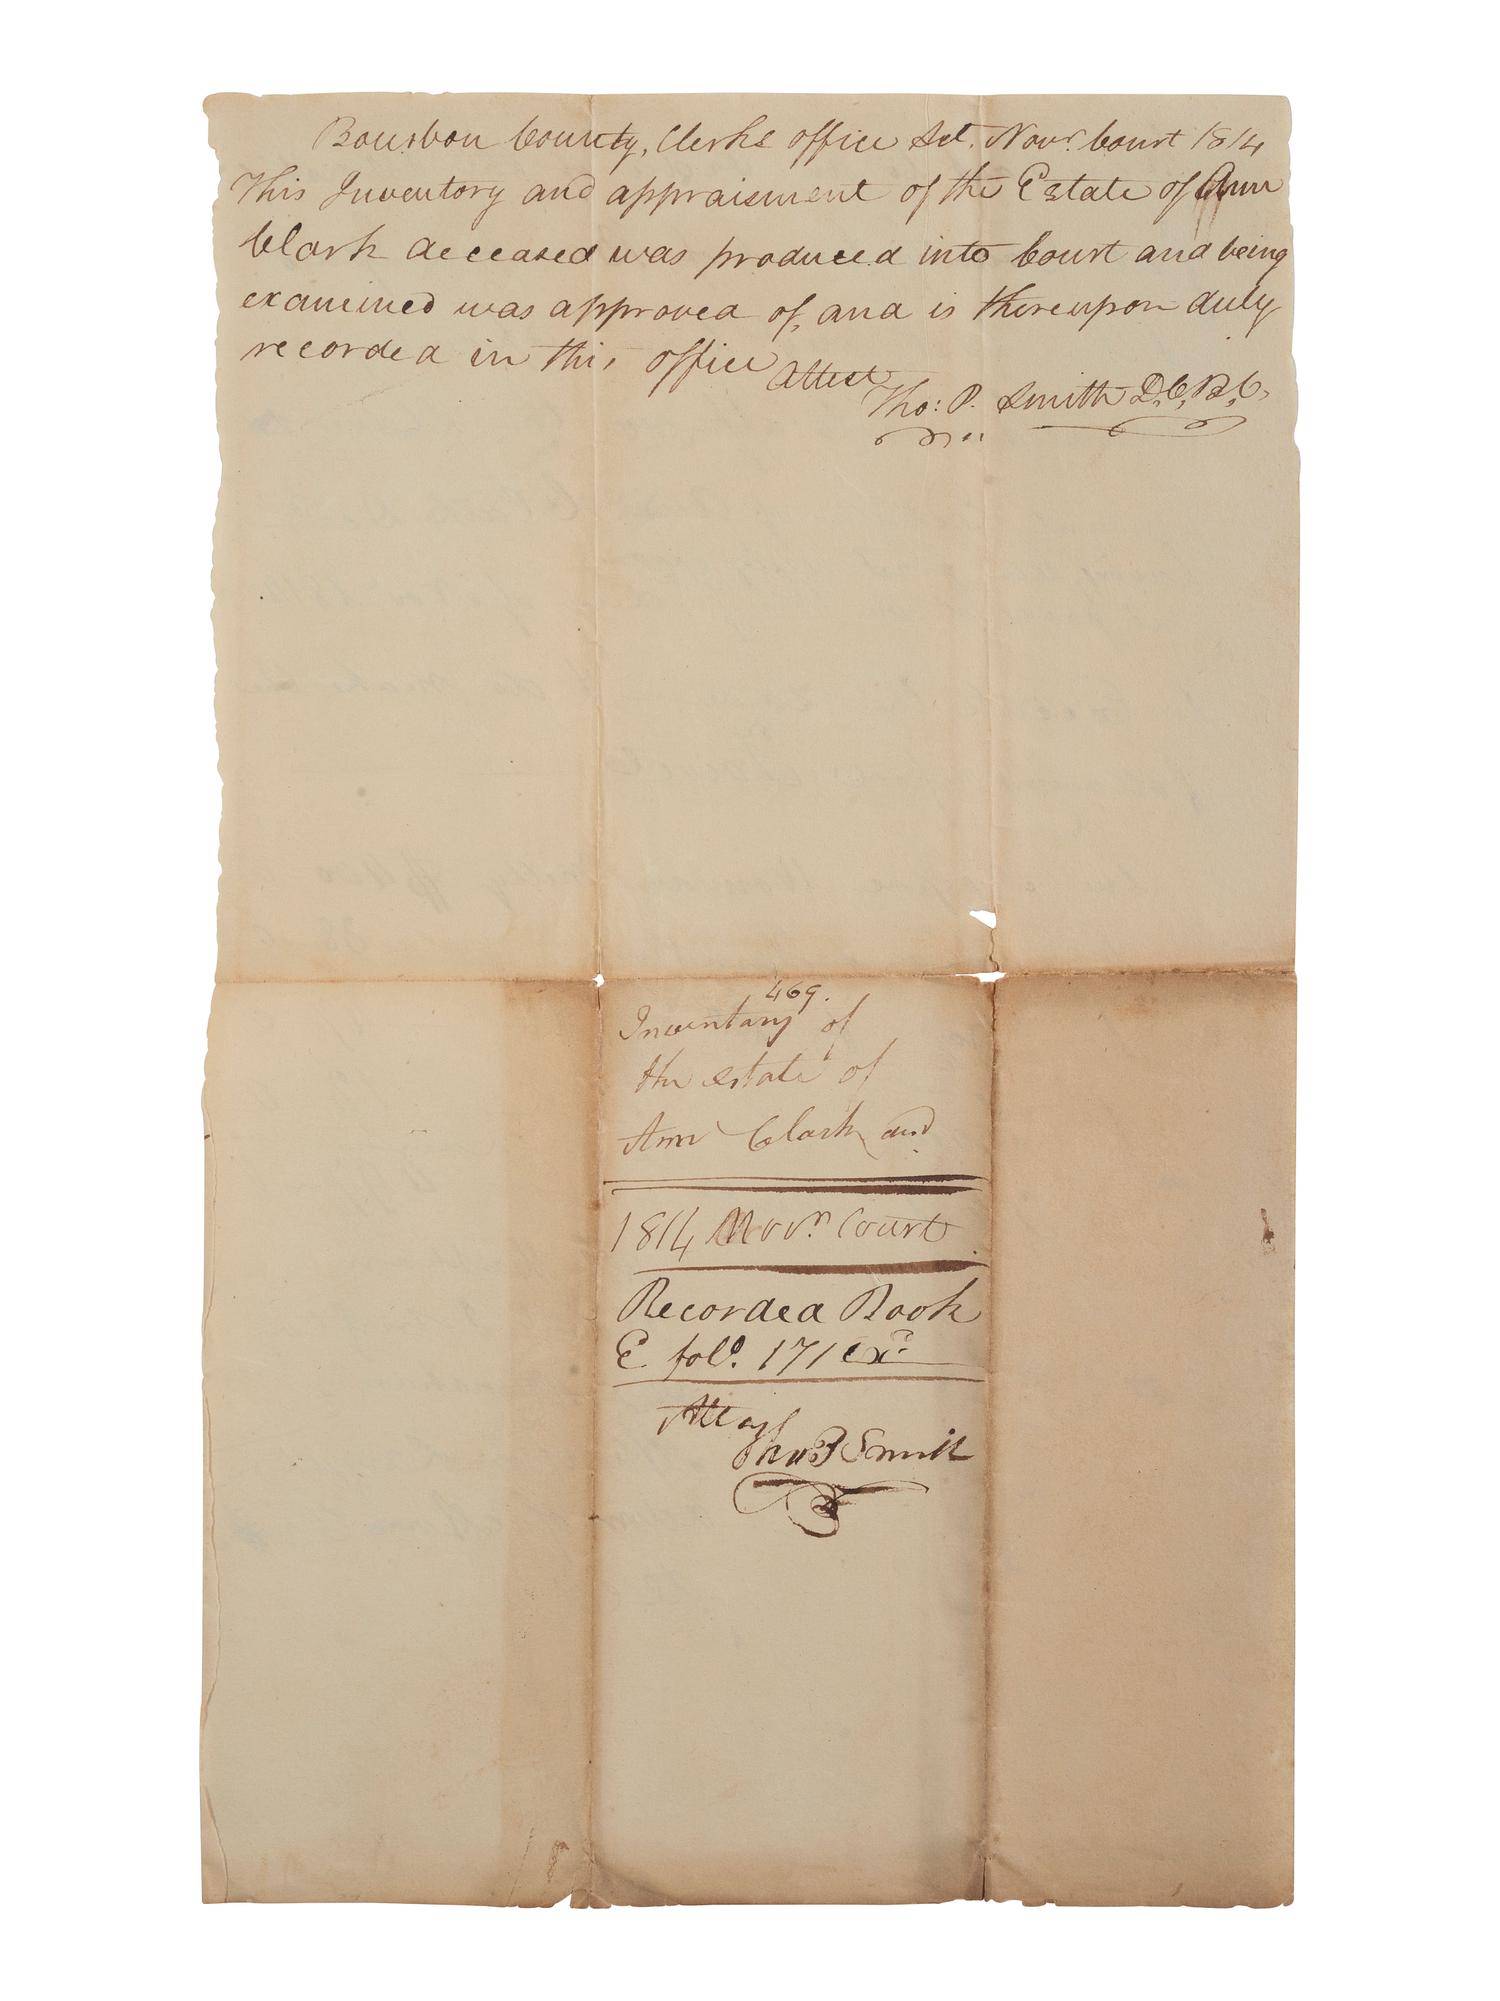 Bourbon County, Clerks office Sct. Novr. Court 1814
This Inventory and appraisment of the Estate of Ann
Clark deceased was produced into Court and being
examined was approved of, and is thereupon duly
recorded in this office
Attest
Tho: P. Smith D.C.B.C.
469.
Inventary of
the estate of
Ann Clark
1814 Novr. Court
Recorded Book
E fol. 171
Attest
Thos P Smith